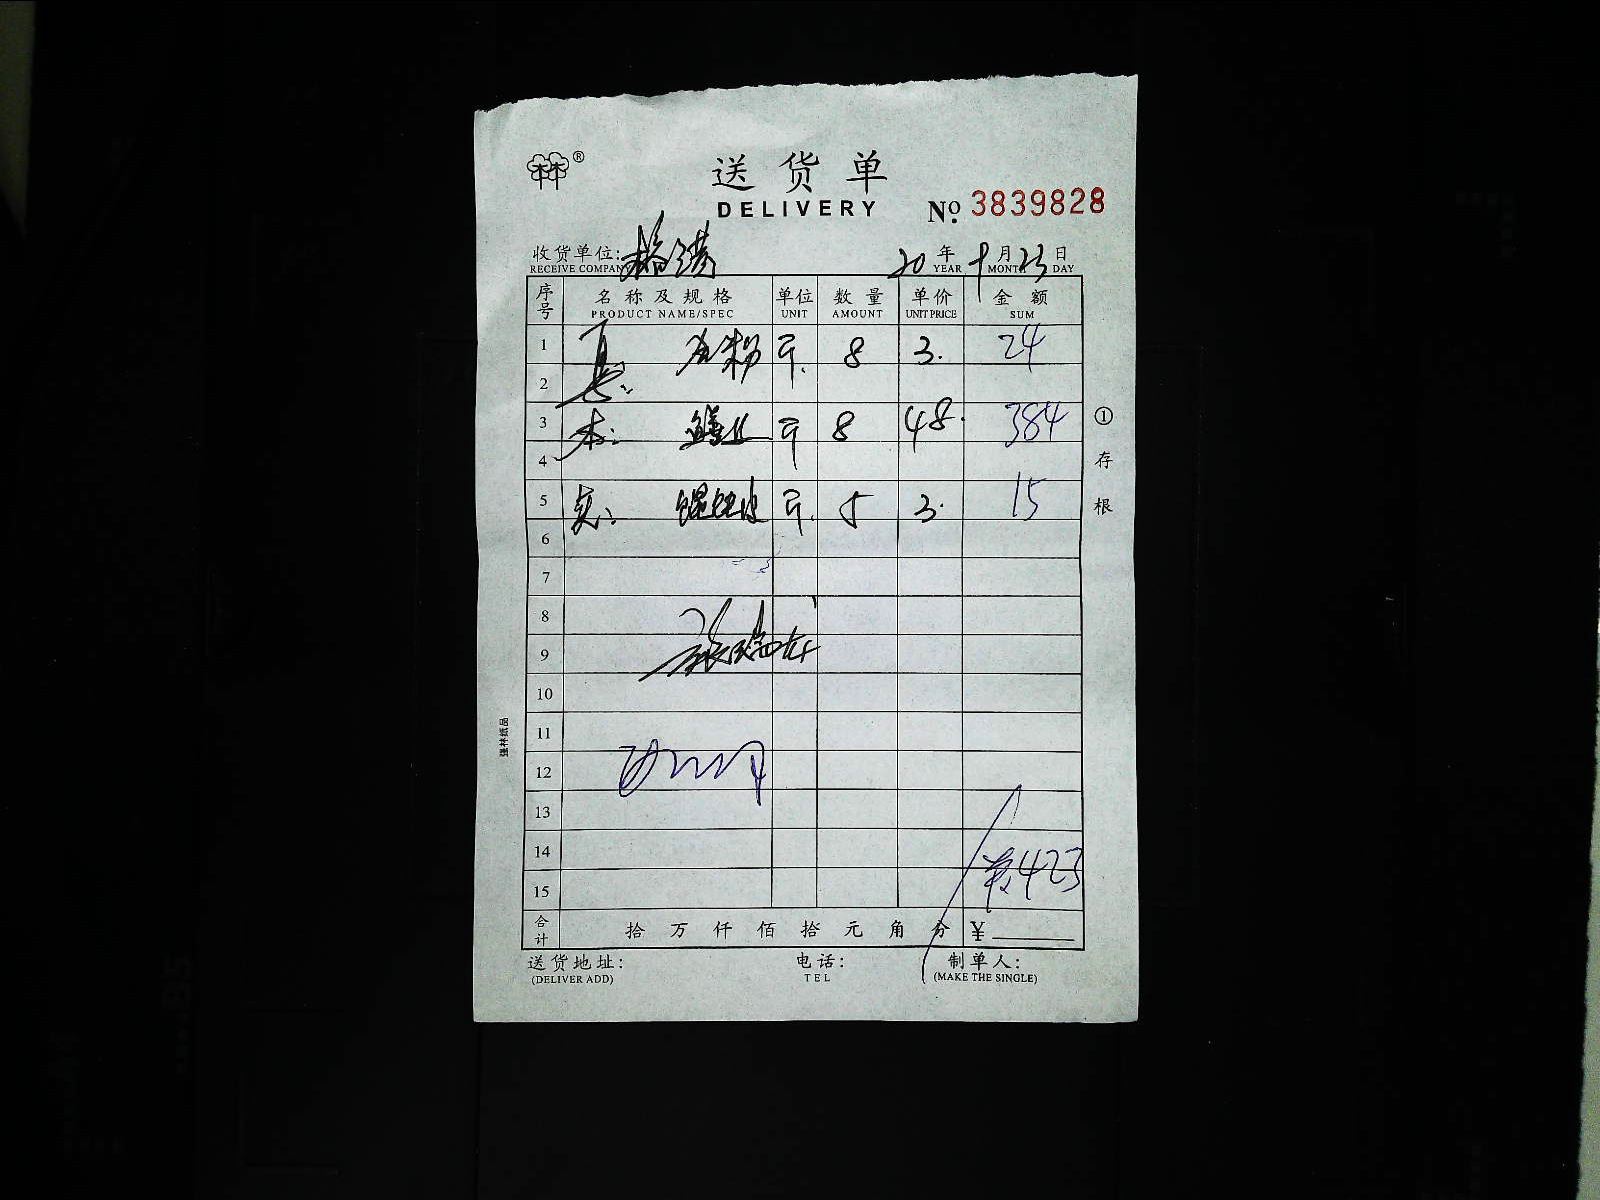 林®
送货单
DELIVERY
No. 3839828
收货单位: 20年9月23日
RECEIVE COMPANY YEAR MONTH DAY
序号 名称及规格 单位 数量 单价 金额
PRODUCT NAME/SPEC UNIT AMOUNT UNIT PRICE SUM
1 斤 8 3. 24
2
3 本: 鳝丝 斤 8 48. 384
4
5 斤. 5 3. 15
6
7
8
9
10
11
12
13
14
15 423
合计 拾万仟佰拾元角分 ¥
送货地址: 电话: 制单人:
(DELIVER ADD) TEL (MAKE THE SINGLE)
①存根
强林纸品